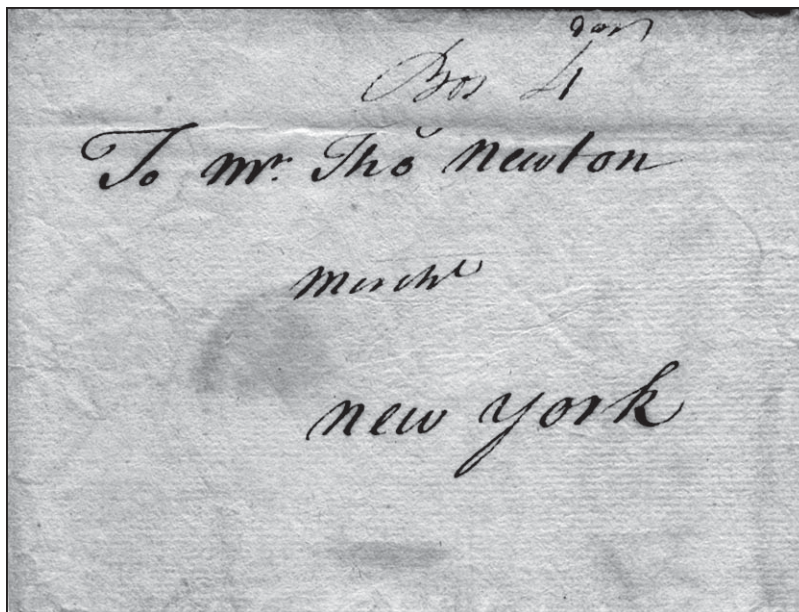 Bos 4
To Mr. Thõ Newton
Mercht
new york